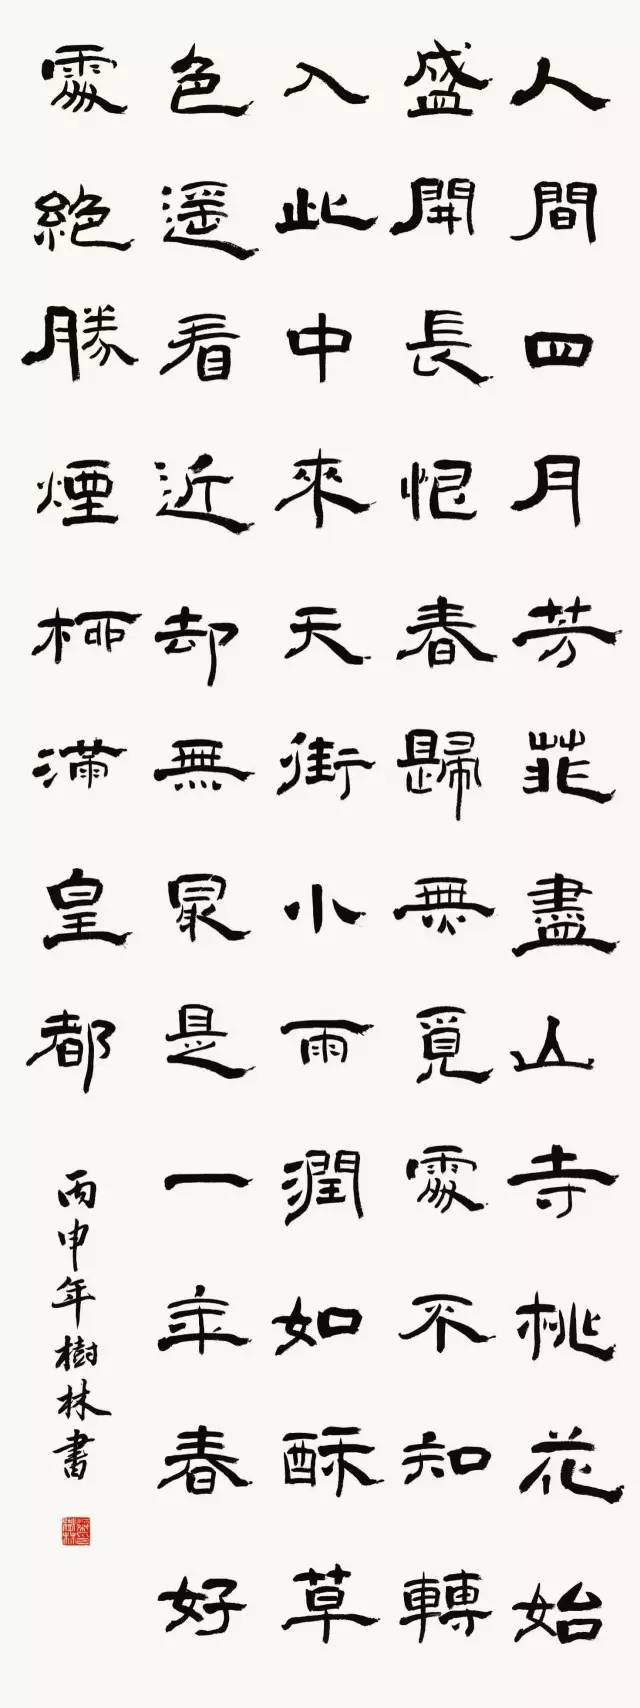 人間四月芳菲盡山寺桃花始
盛開長恨春歸無覓處不知轉
入此中來天街小雨潤如酥草
色遙看近却無最是一年春好
處絶勝煙柳滿皇都
丙申年樹林書